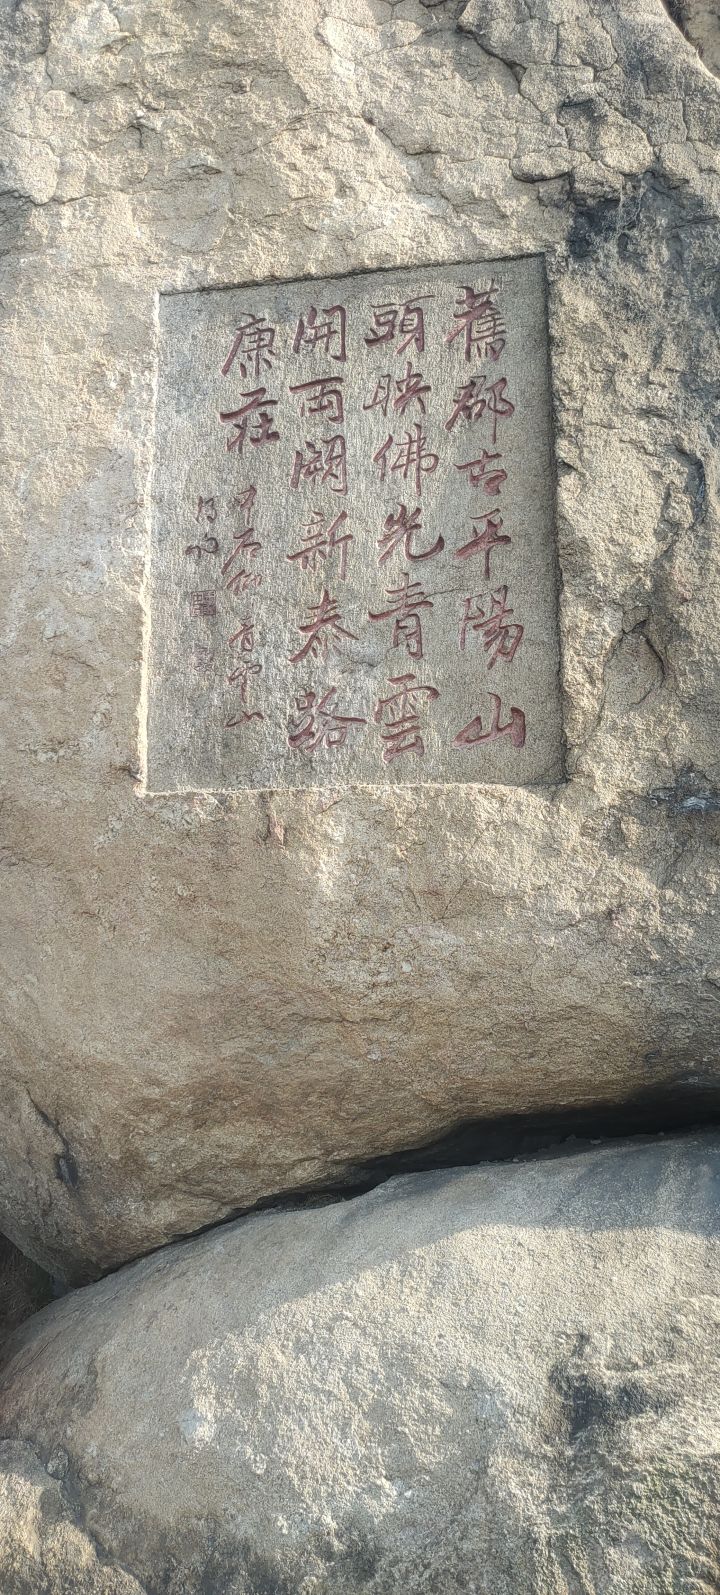 舊郡古平陽山
頭映佛光青雲
開両闕新泰路
康莊 中石仰青雲山
得句